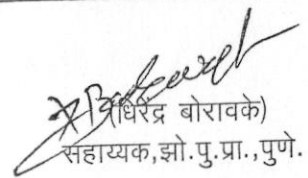 (धिरेंद्र बोरावके)
सहाय्यक,झो.पु.प्रा.,पुणे.